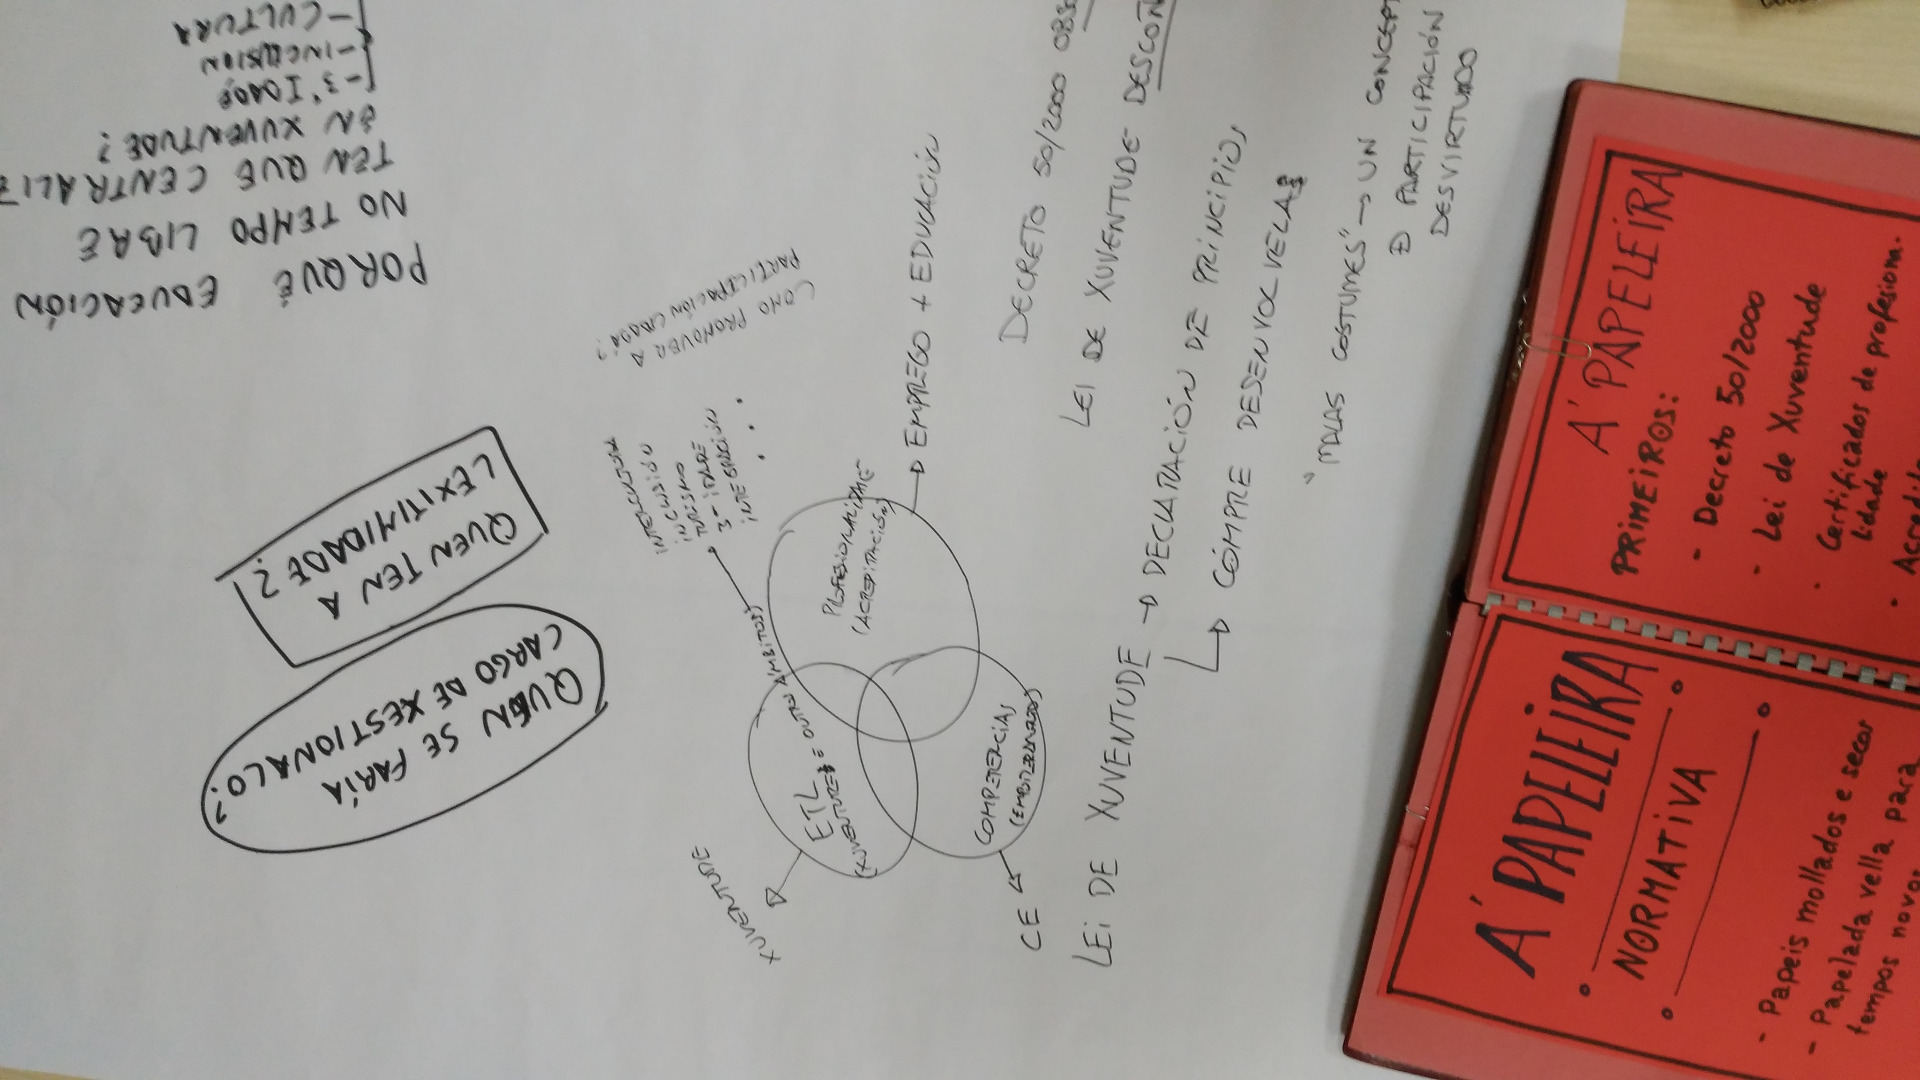 PORQUÉ EDUCACIÓN
NO TEMPO LIBRE
TEN QUE CENTRALIZ
EN XUVENTUDE?
- 3ª IDADE
- INCLUSION
- CULTURA
COMO PROMOVER A
PARTICIPACIÓN CIDADÁ?
QUEN TEN A
LEXITIMIDADE?
QUEN SE FARÍA
CARGO DE XESTIONALO?
INTERCULTURA
INCLUSIÓN
TURISMO
3ª IDADE
INTEGRACIÓN
PROFESIONALIDADE
(ACREDITACIÓN)
→ EMPREGO + EDUCACIÓN
ETL
(XUVENTUDE E OUTROS ÁMBITOS)
XUVENTUDE
COMPETENCIAS
CE
DECRETO 50/2000 OBSO
LEI DE XUVENTUDE DESCON
LEI DE XUVENTUDE → DECLARACIÓN DE PRINCIPIOS
↳ CÓMPRE DESENVOLVELAS
"MALAS COSTUMES" → UN CONCEPT
D PARTICIPACIÓN
DESVIRTUADO
Á PAPELEIRA
NORMATIVA
- Papeis mollados e secos
- Papelada vella para
tempos novos
Á PAPELEIRA
PRIMEIROS:
- Decreto 50/2000
· Lei de Xuventude
· Certificados de profesiona-
lidade